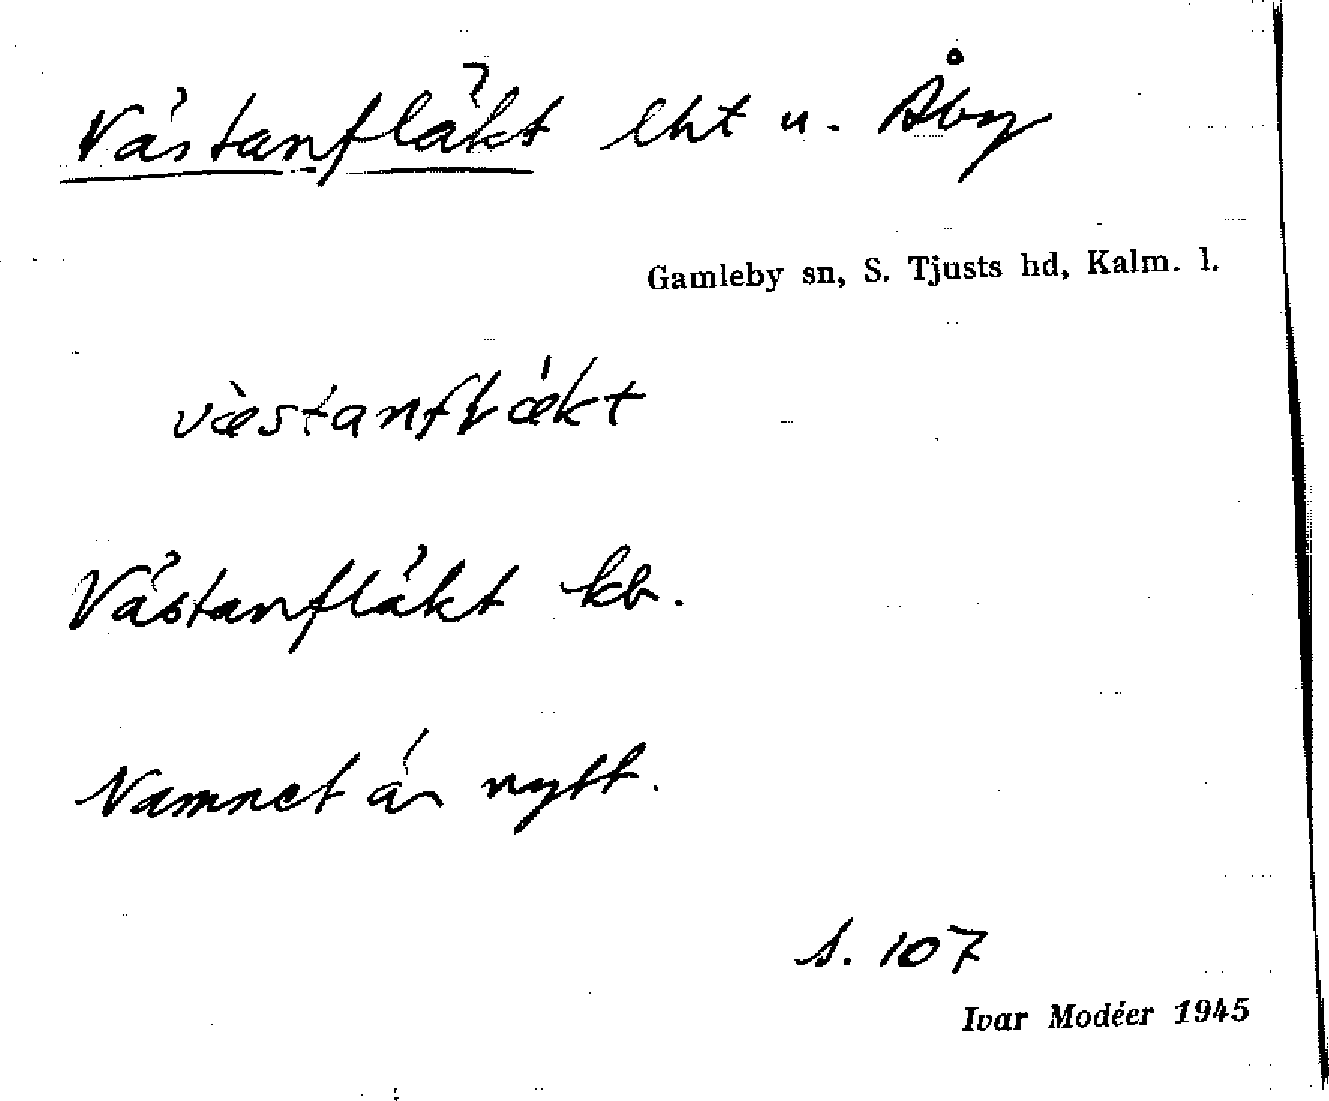 Västanfläkt lht u. Åby
Gamleby sn, S. Tjusts hd, Kalm. l.
væ̀stanflæ̀kt
Västanfläkt kb.
Namnet är nytt.
s. 107
Ivar Modéer 1945